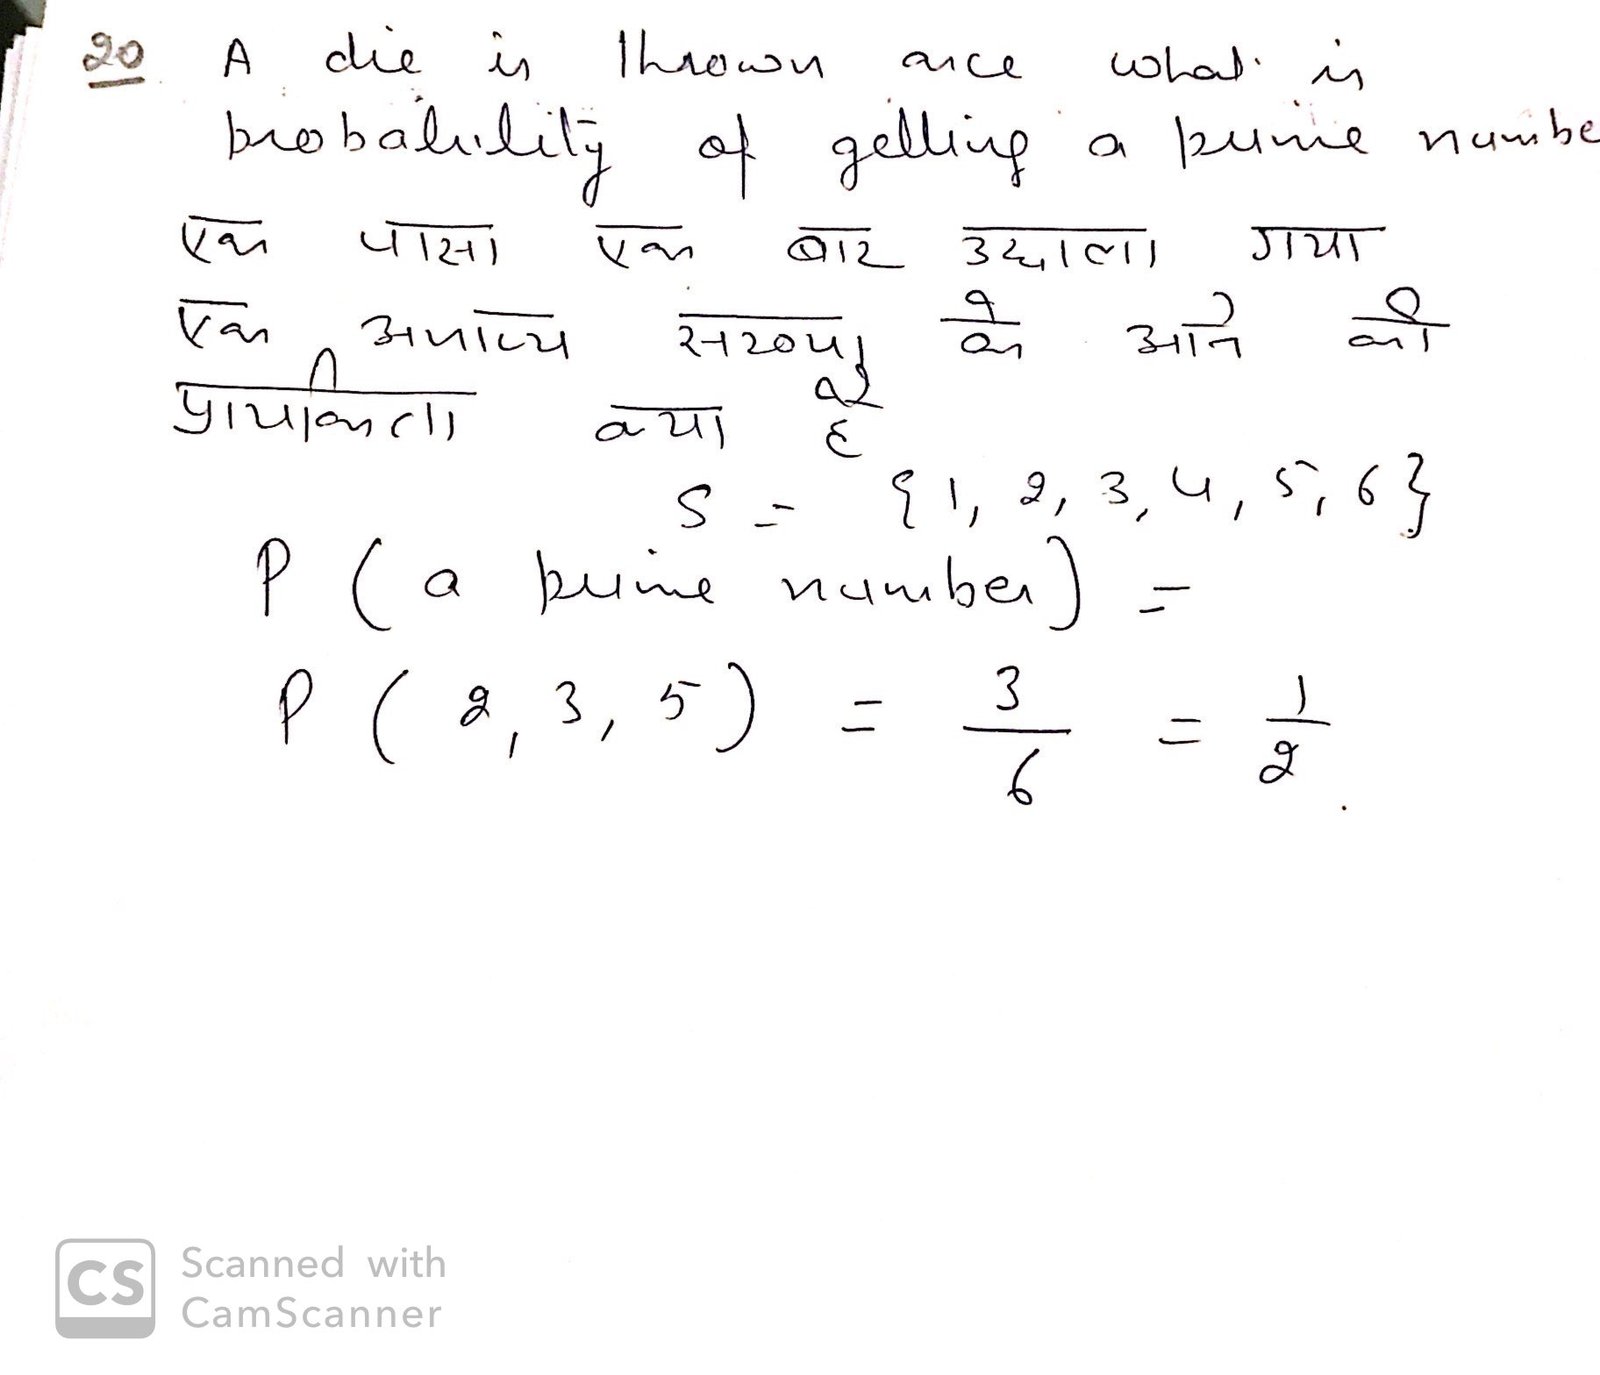 20 A die is thrown once what is
probability of getting a prime numbe
एक पासा एक बार उछाला गया
एक अभाज्य सख्या के आने की
प्रायिकता क्या है
S = {1, 2, 3, 4, 5, 6}
P ( a prime number) =
P ( 2, 3, 5) = 3/6 = 1/2
CS Scanned with
CamScanner